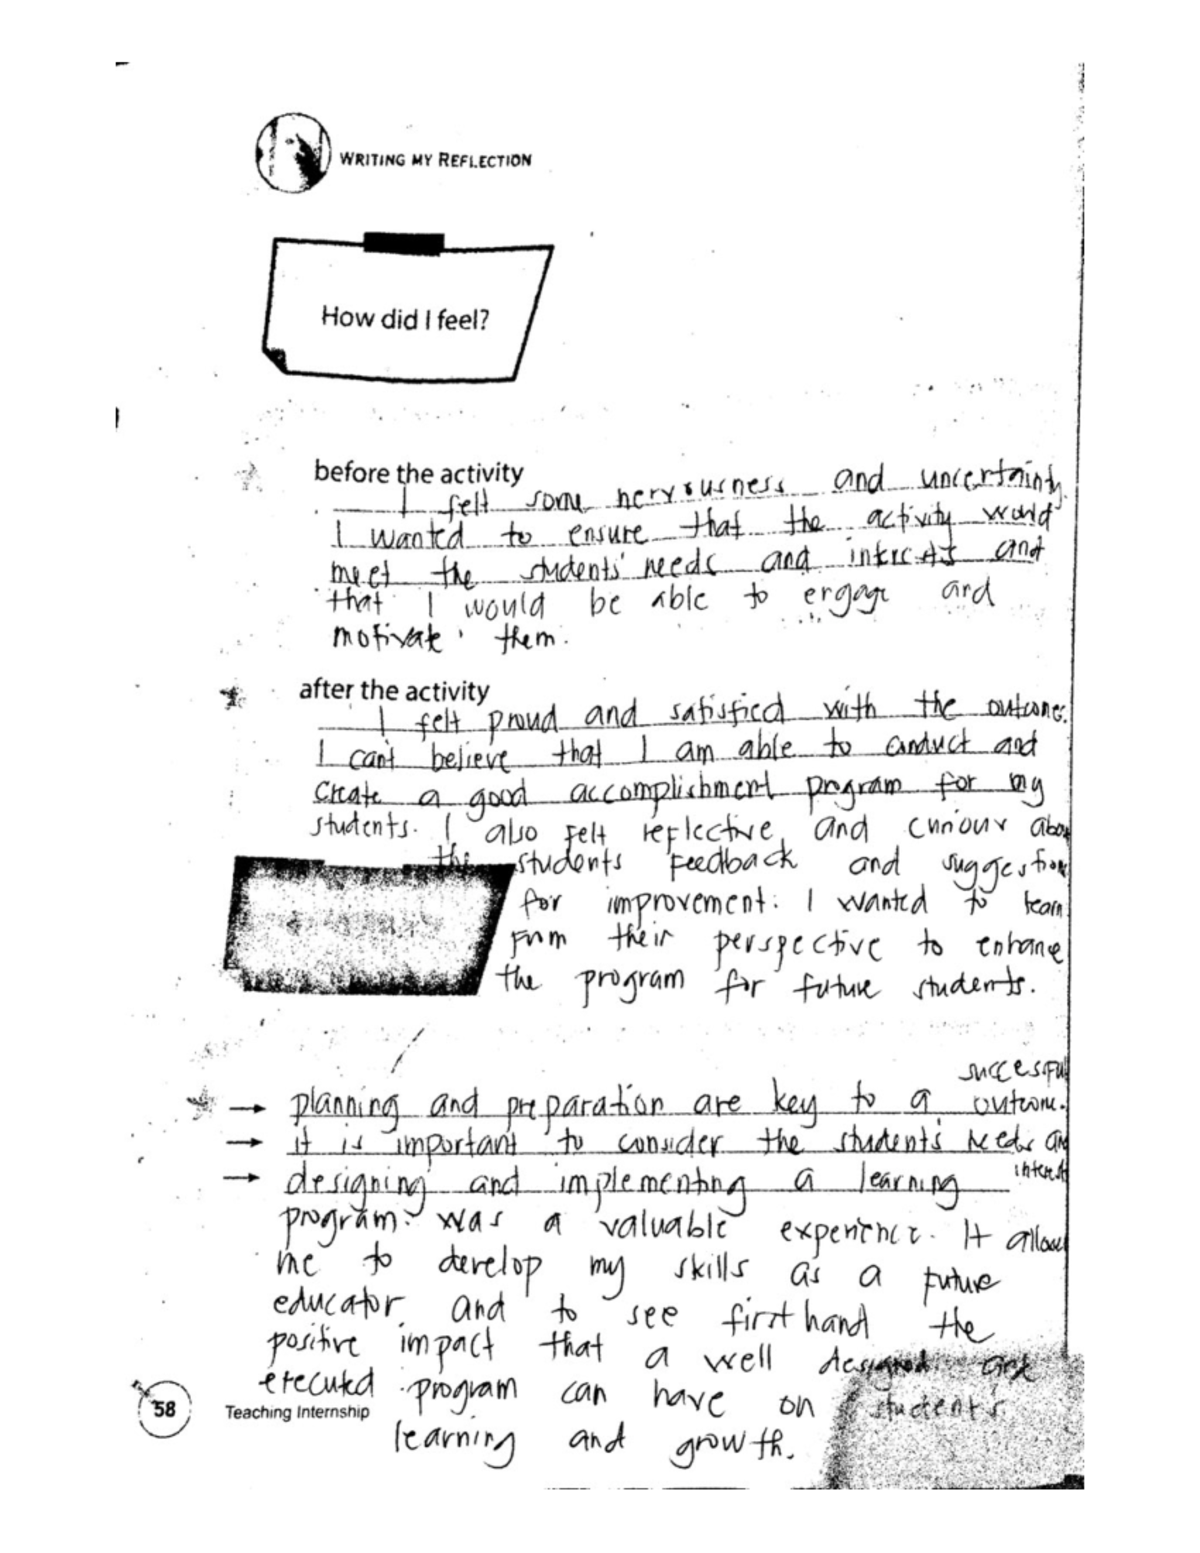 WRITING MY REFLECTION
How did I feel?
before the activity
I felt some nervousness and uncertainty.
I wanted to ensure that the activity would
meet the students' needs and interests and
that I would be able to engage and
motivate them.
after the activity
I felt proud and satisfied with the outcome.
I can't believe that I am able to conduct and
create a good accomplishment program for my
students. I also felt reflective and curious about
the students feedback and suggestion
for improvement. I wanted to learn
from their perspective to enhance
the program for future students.
successful
→ planning and preparation are key to a outcome.
→ it is important to consider the students' needs and
interest
→ designing and implementing a learning
program. was a valuable experience. It allow
me to develop my skills as a future
educator and to see firsthand the
positive impact that a well designed and
executed program can have on student's
58 Teaching Internship
learning and growth.